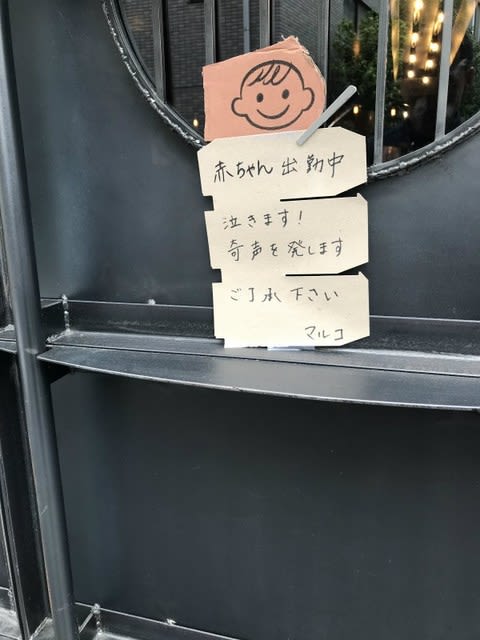 赤ちゃん 出勤中
泣きます!
奇声を発します
ご了承下さい
マルコ